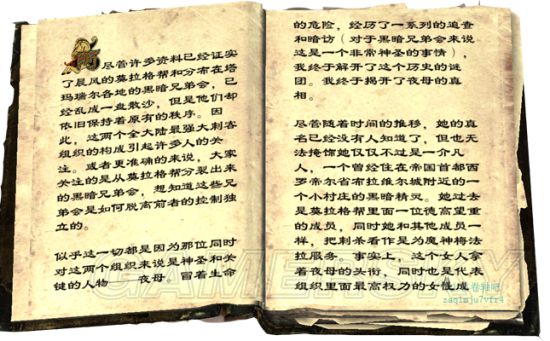 尽管许多资料已经证实
了晨风的莫拉格帮和分布在塔
玛瑞尔各地的黑暗兄弟会，已
经乱成一盘散沙，但是他们却
依旧保持着原有的秩序。因
此，这两个全大陆最强大刺客
组织的构成引起许多人的关
注。或者更准确的来说，大家
关注的是从莫拉格帮分裂出来
的黑暗兄弟会，想知道这些兄
弟会是如何脱离前者的控制独
立的。
似乎这一切都是因为那位同时
对这两个组织来说是神圣和关
键的人物——夜母。冒着生命
的危险，经历了一系列的追查
和暗访（对于黑暗兄弟会来说
这是一个非常神圣的事情），
我终于解开了这个历史的谜
团。我终于揭开了夜母的真
相。
尽管随着时间的推移，她的真
名已经没有人知道了，但也无
法掩饰她仅仅不过是一介凡
人，一个曾经住在帝国首都西
罗帝尔省布拉维尔城附近的一
个小村庄的黑暗精灵。她过去
是莫拉格帮里面一位德高望重
的成员，同时她和其他成员一
样，把刺杀看作是为魔神梅法
拉服务。事实上，这个女人拿
着夜母的头衔，同时也是代表
组织里面最高权力的女性成
zaqimju7vfr4